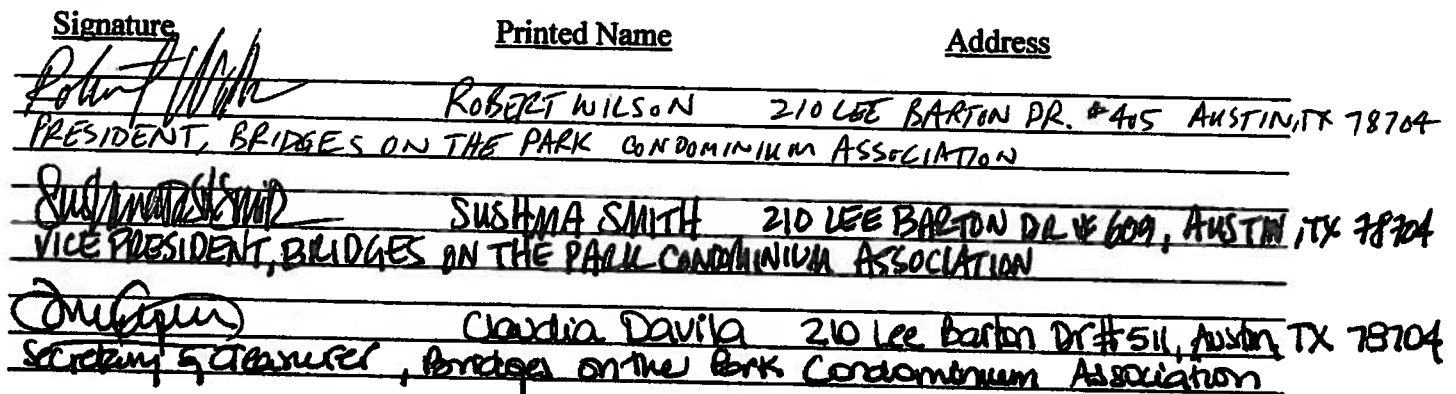 Signature Printed Name Address
Robert Wilson ROBERT WILSON 210 LEE BARTON DR. #405 AUSTIN, TX 78704
PRESIDENT, BRIDGES ON THE PARK CONDOMINIUM ASSOCIATION
SUSHMA SMITH 210 LEE BARTON DR #609, AUSTIN, TX 78704
VICE PRESIDENT, BRIDGES ON THE PARK CONDOMINIUM ASSOCIATION
Claudia Davila 210 Lee Barton Dr #511, Austin, TX 78704
Secretary & Treasurer, Bridges on the Park Condominium Association